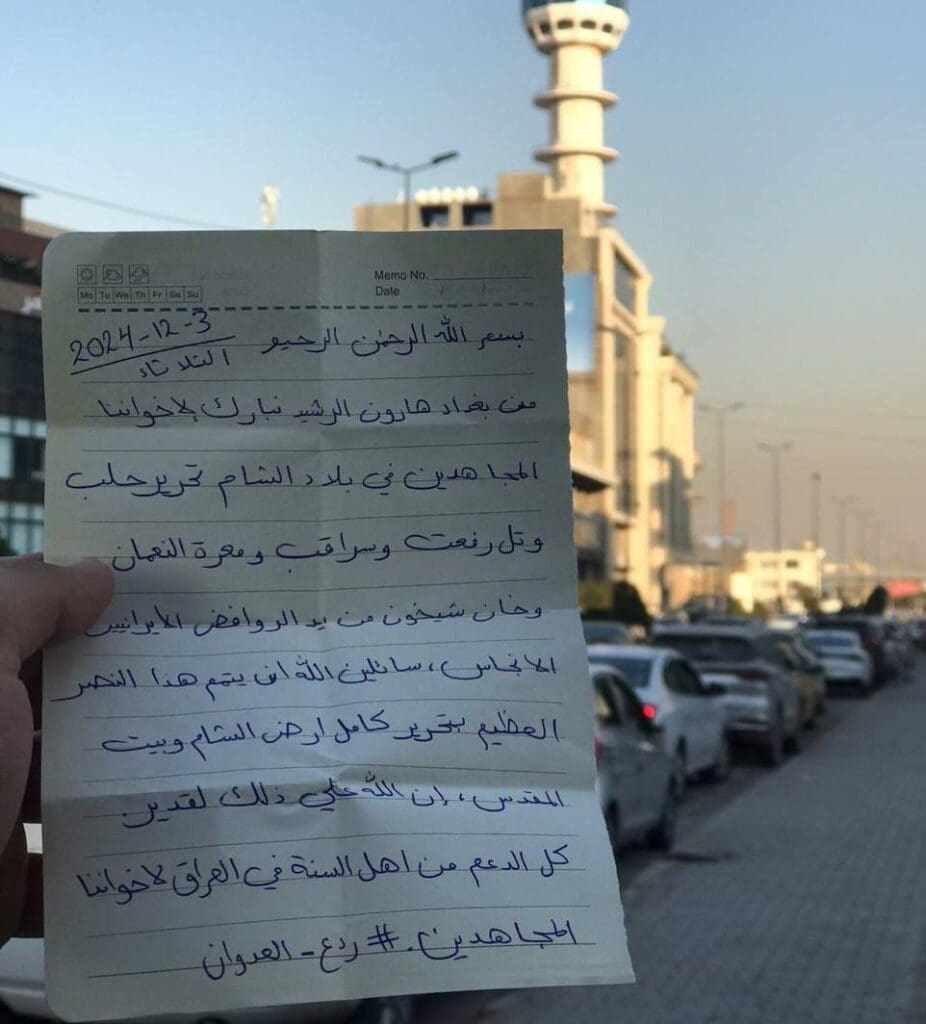 Memo No.
Date / /
Mo Tu We Th Fr Sa Su
بسم الله الرحمن الرحيم 2024-12-3
الثلاثاء
من بغداد هارون الرشيد نبارك لاخواننا
المجاهدين في بلاد الشام تحرير حلب
وتل رفعت وسراقب ومعرة النعمان
وخان شيخون من يد الروافض الأيرانيين
الانجاس، سائلين الله ان يتمم هذا النصر
العظيم بتحرير كامل ارض الشام وبيت
المقدس، إن الله علي ذلك لقدير.
كل الدعم من اهل السنة في العراق لاخواننا
المجاهدين. #ردع_العدوان